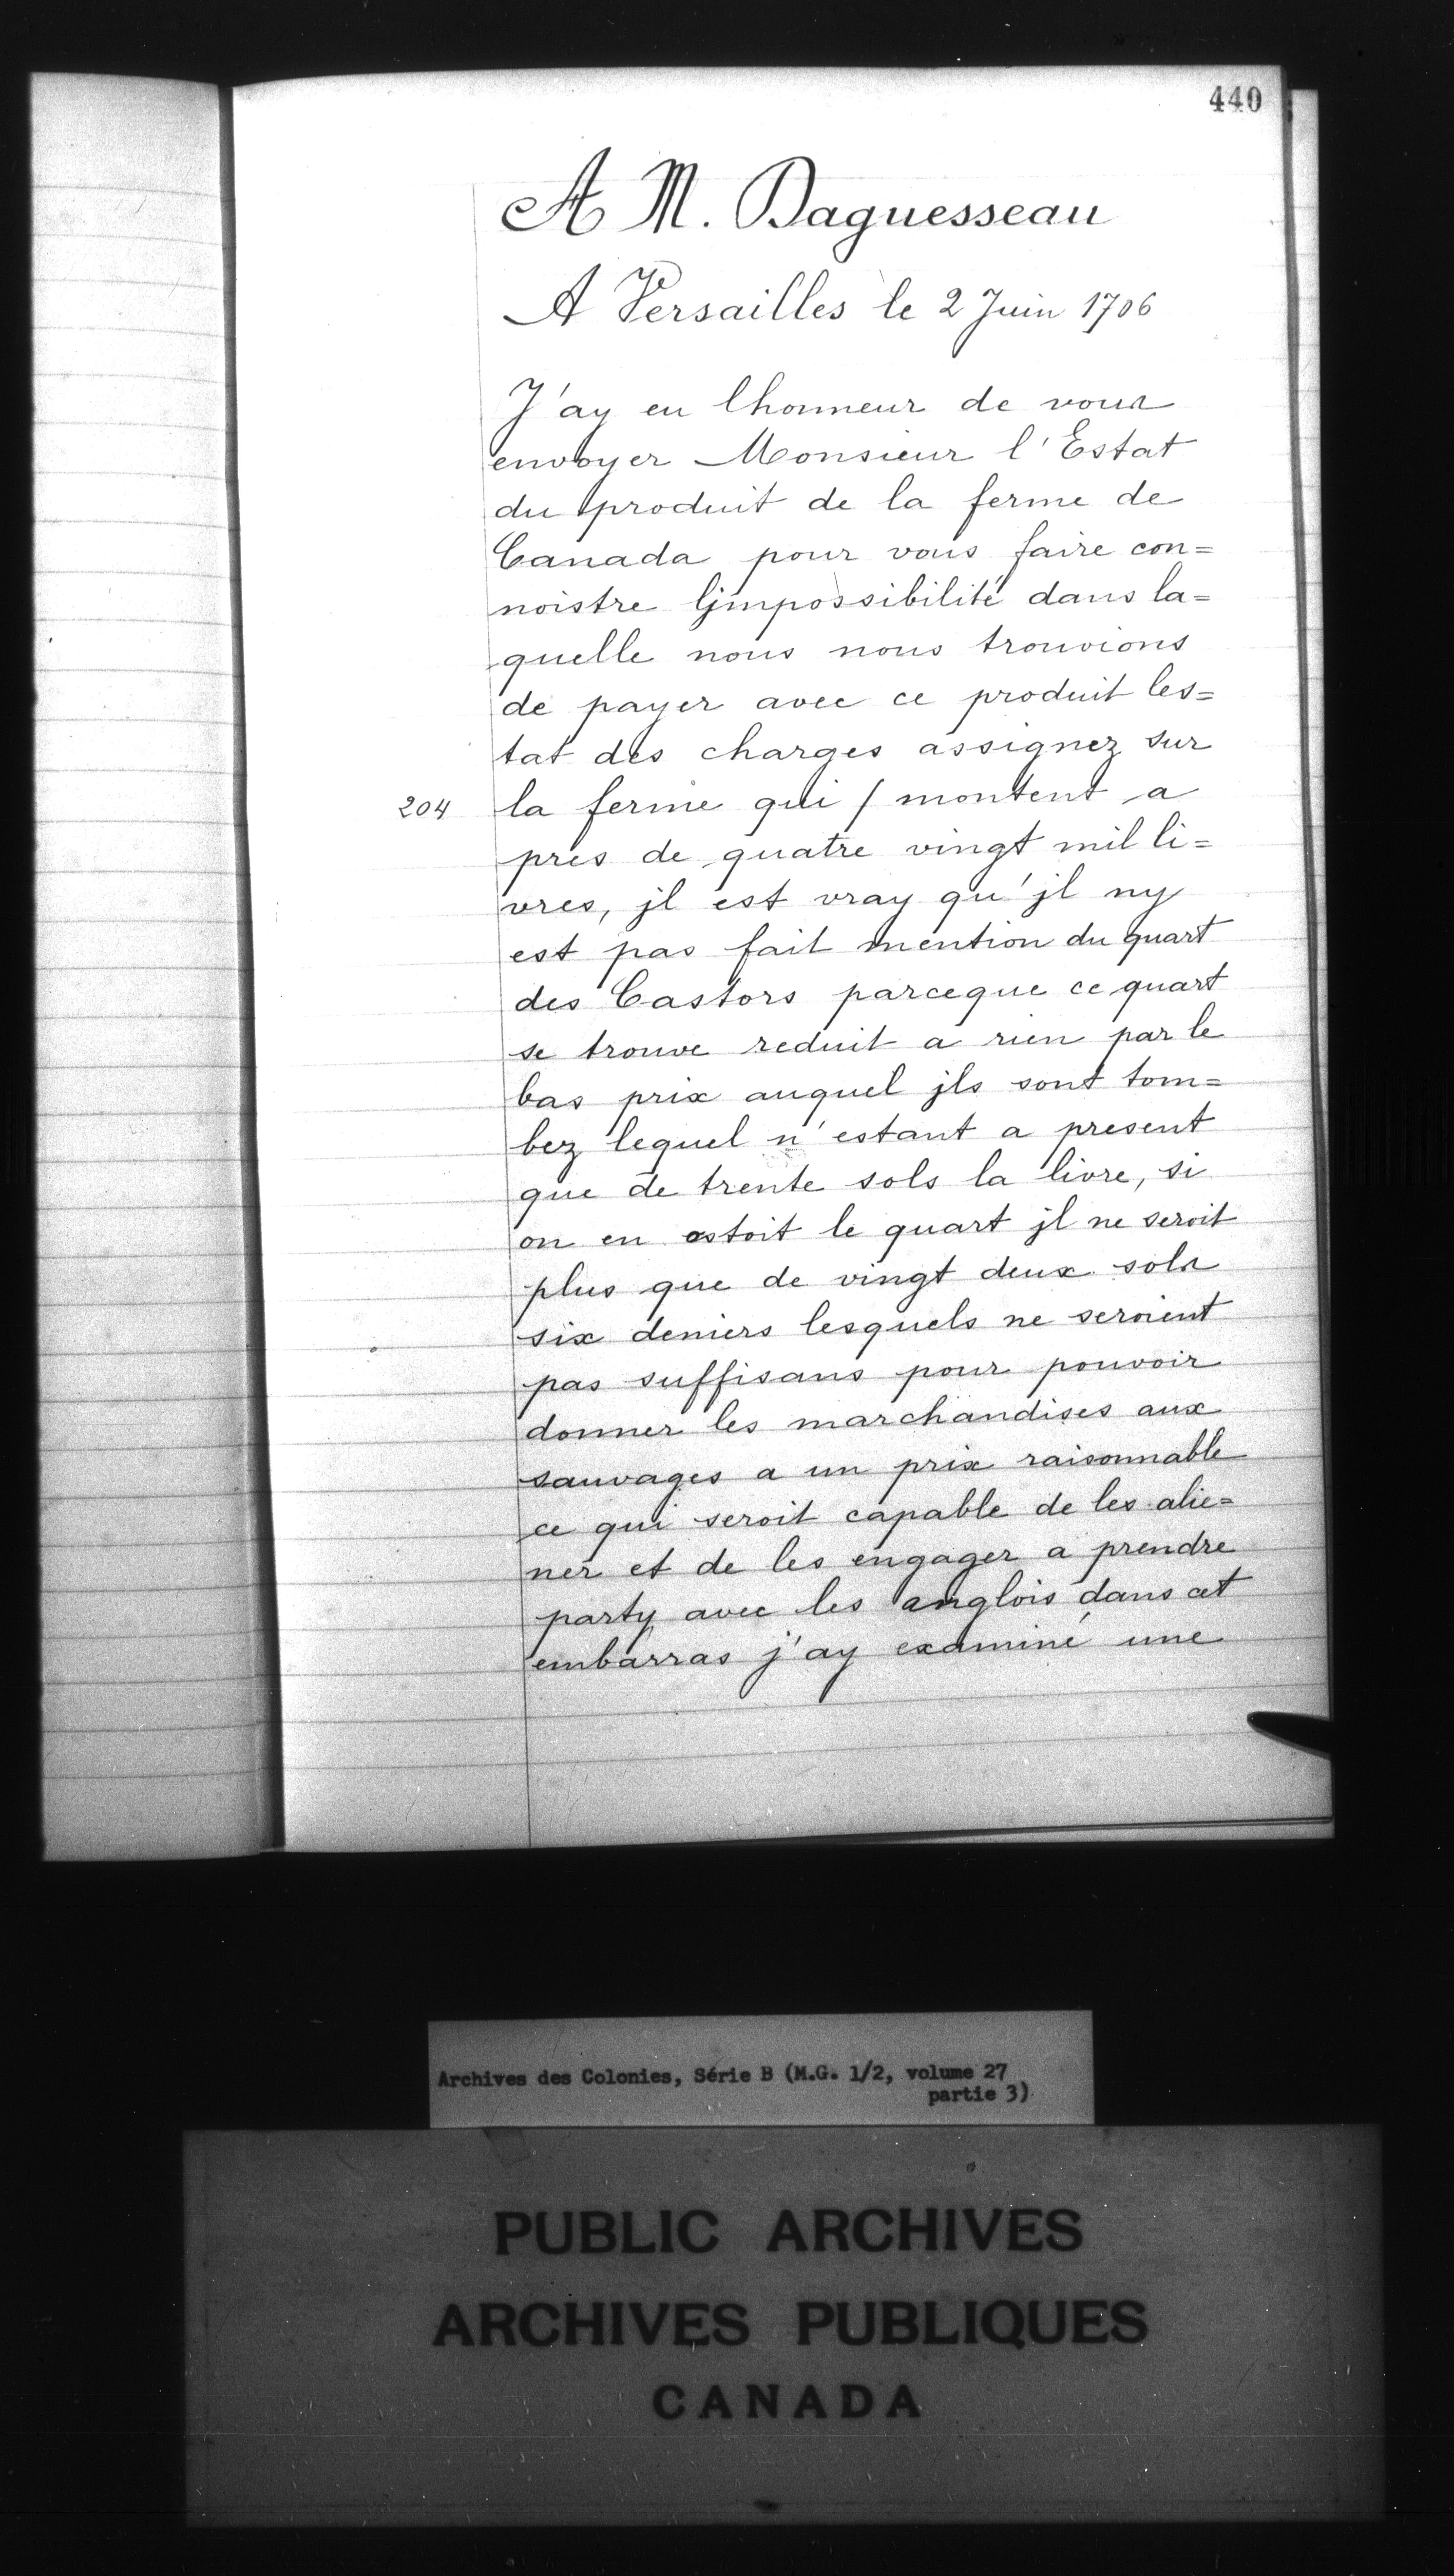 440
A M. Daguesseau
A Versailles le 2 Juin 1706
J'ay eu lhonneur de vous
envoyer Monsieur l'Estat
du produit de la ferme de
Canada pour vous faire con=
noistre ljmpossibilité dans la=
quelle nous nous trouvions
de payer avec ce produit les=
tat des charges assignez sur
204 la ferme qui / montent a
pres de quatre vingt mil li=
vres, jl est vray qu'jl ny
est pas fait mention du quart
des Castors parceque ce quart
se trouve reduit a rien par le
bas prix auquel jls sont tom=
bez lequel n'estant a present
que de trente sols la livre, si
on en ostoit le quart jl ne seroit
plus que de vingt deux sols
six deniers lesquels ne seroient
pas suffisans pour pouvoir
donner les marchandises aux
sauvages a un prix raisonnable
ce qui seroit capable de les alie=
ner et de les engager a prendre
party avec les anglois dans cet
embarras j'ay examiné une
Archives des Colonies, Série B (M.G. 1/2, volume 27
partie 3)
PUBLIC ARCHIVES
ARCHIVES PUBLIQUES
CANADA